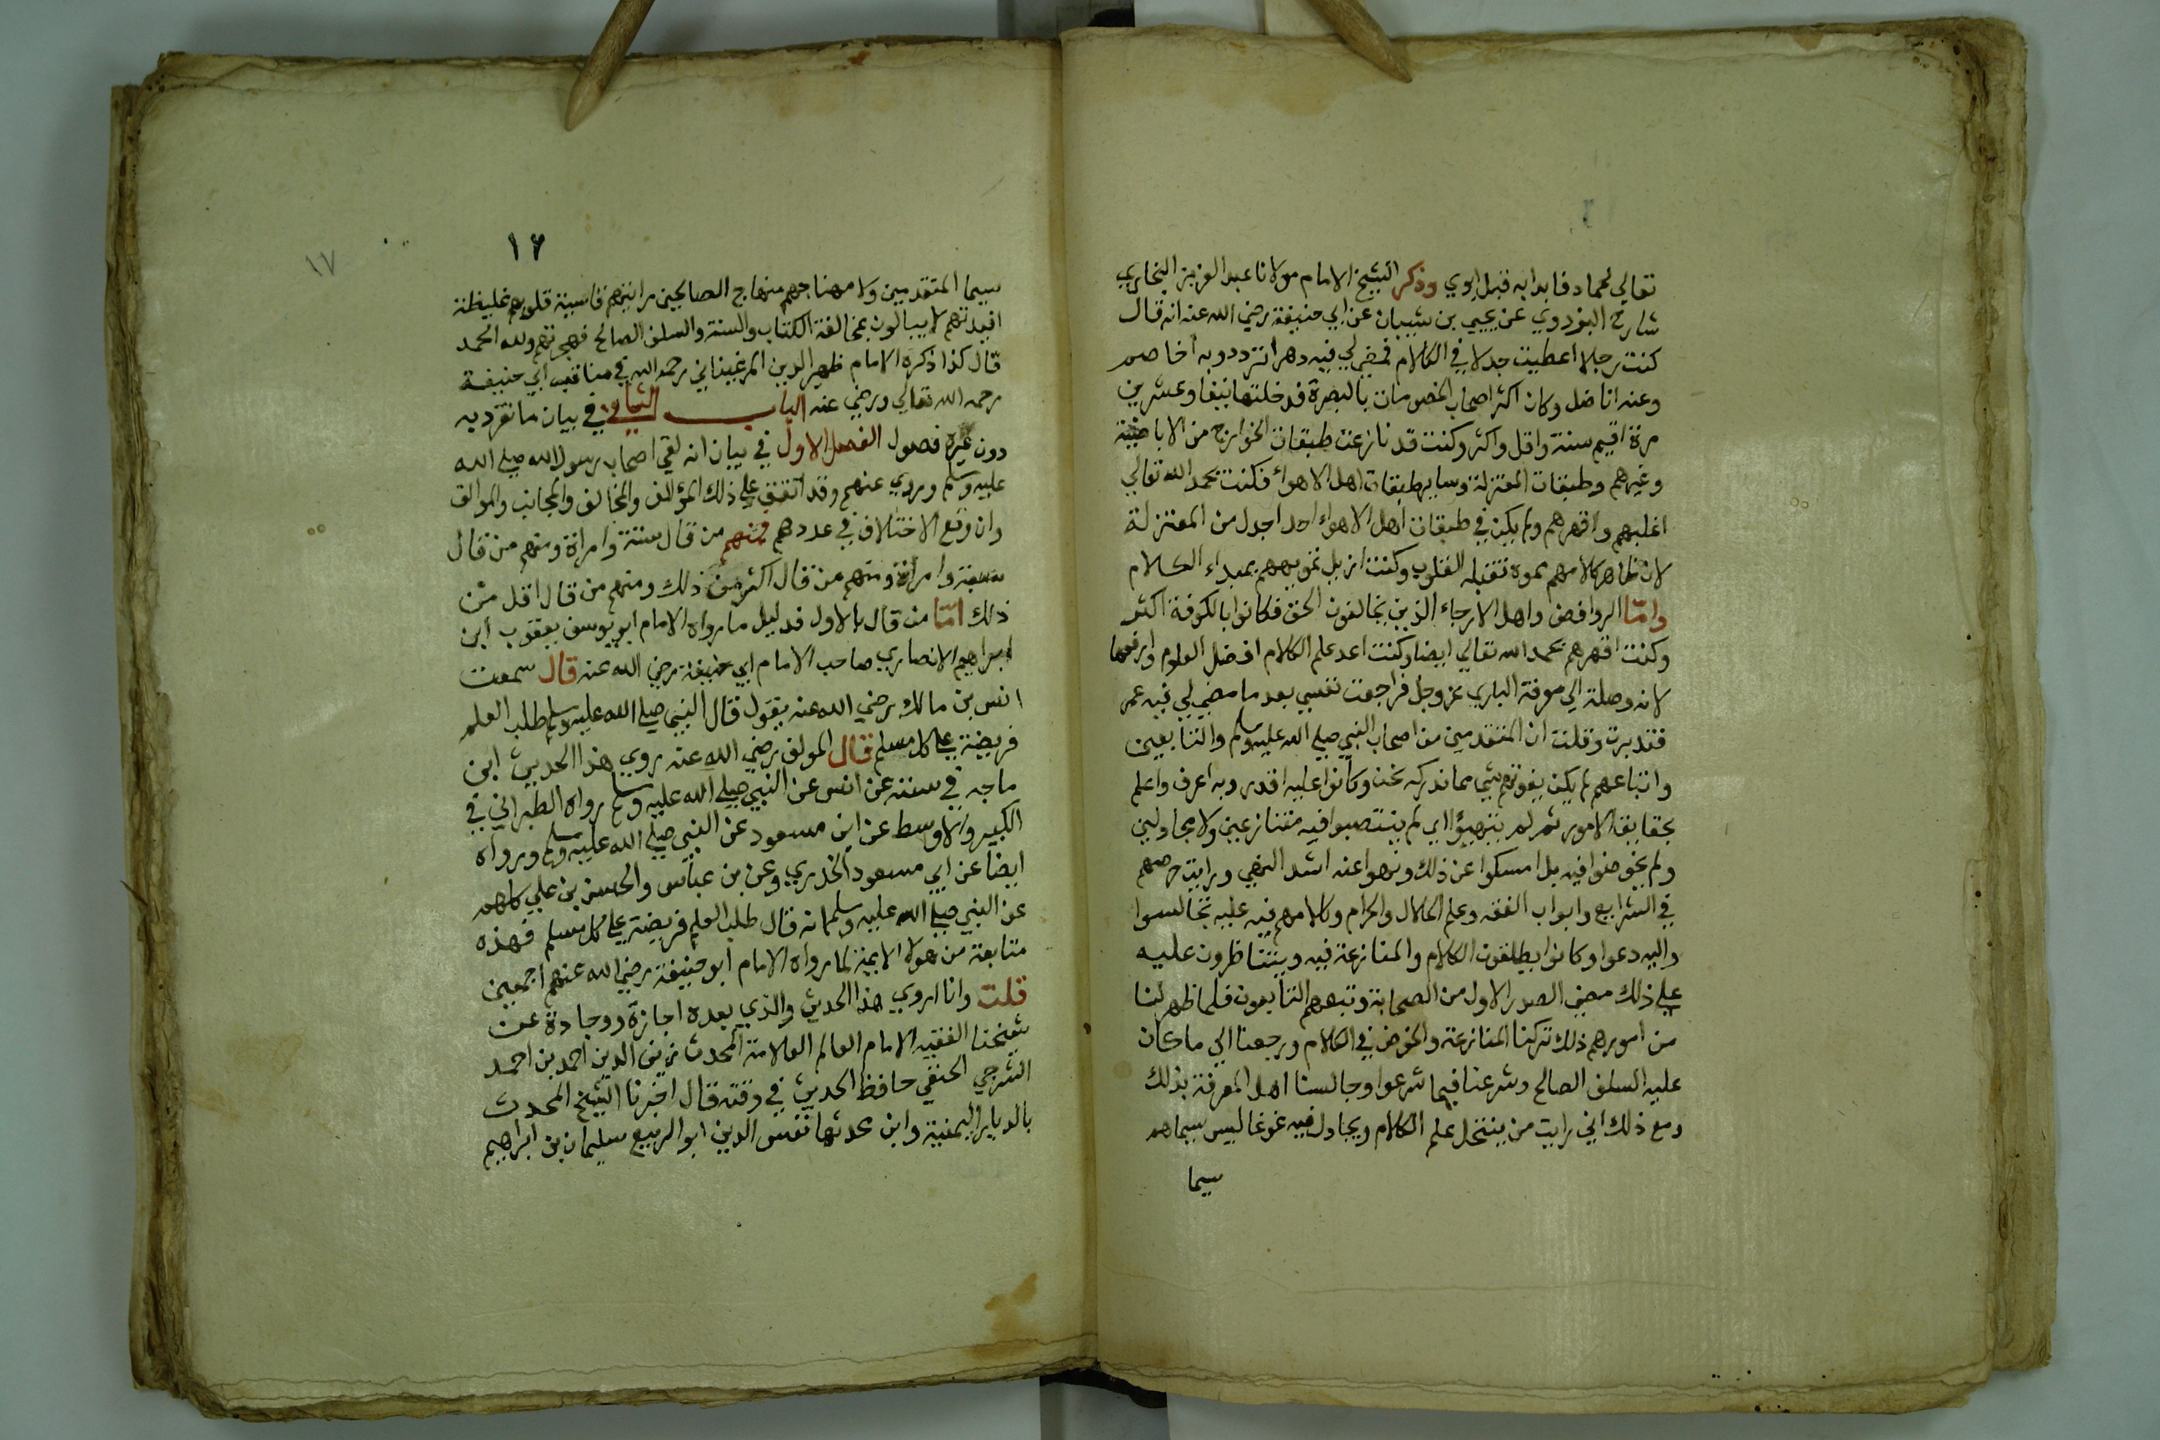 تعالي لحماد فابدا به قبل ابوي وذكر الشيخ الامام مولانا عبد العزيز البخاري
شارح البزدوي عن يحيي بن شيبان عن ابي حنيفة رضي الله عنه انه قال
كنت رجلا اعطيت جدلا في الكلام فمضي لي فيه دهر اتردد وبه اخاصم
وعنه اناضل وكان اكثر اصحاب الخصومات بالبصرة فدخلتها نيفا وعشرين
مرة اقيم سنة واقل واكثر وكنت قد نازعت طبقات الخوارج من الاباضية
وغيرهم وطبقات المعتزلة وساير طبقات اهل الاهواء فكنت بحمد الله تعالي
اغلبهم واقهرهم ولم يكن في طبقات اهل الاهواء احد اجدل من المعتزلة
لان ظاهر كلامهم مموه تقبله القلوب وكنت ازيل تمويههم بمبداء الكلام
واما الروافض واهل الارجاء الذين يخالفون الحق فكانوا بالكوفة اكثر
وكنت اقهرهم بحمد الله تعالي ايضا وكنت اعد علم الكلام افضل العلوم وارفعها
لانه وصلة الي معرفة الباري عز وجل فراجعت نفسي بعد ما مضي لي فيه عمر
فتدبرت وقلت ان المتقدمين من اصحاب النبي صلي الله عليه وسلم والتابعين
واتباعهم لم يكن يفوتهم شي مما ندركه نحن وكانوا عليه اقدر وبه اعرف واعلم
بحقايق الامور ثم لم يتهيؤا اي لم ينتصبوا فيه متنازعين ولا مجادلين
ولم يخوضوا فيه بل امسكوا عن ذلك ونهوا عنه اشد النهي ورايت خوضهم
في الشرايع وابواب الفقه وعلم الحلال والحرام وكلامهم فيه عليه تجالسوا
واليه دعوا وكانوا يطلقون الكلام والمنازعة فيه ويتناظرون عليه
علي ذلك مضي الصدر الاول من الصحابة وتبعهم التابعون فلما ظهر لنا
من امورهم ذلك تركنا المنازعة والخوض في الكلام ورجعنا الي ما كان
عليه السلف الصالح وشرعنا فيما شرعوا وجالسنا اهل المعرفة بذلك
ومع ذلك اني رايت من ينتحل علم الكلام ويجادل فيه غوغا ليس سيماهم
سيما
١٦
١٧
سيما المتقدمين ولا منهاجهم منهاج الصالحين رايتهم قاسية قلوبهم غليظة
افيدتهم لا يبالون بمخالفة الكتاب والسنة والسلف الصالح فهجرتهم ولله الحمد
قال كذا ذكره الامام ظهير الدين المرغيناني رحمه الله في مناقب ابي حنيفة
رحمه الله تعالي ورضي عنه الباب الثاني في بيان ما تفرد به
دون غيره فصول الفصل الاول في بيان انه لقي اصحاب رسول الله صلي الله
عليه وسلم وروي عنهم وقد اتفق علي ذلك المؤالف والمخالف والمجانب والموافق
وان وقع الاختلاف في عددهم فمنهم من قال ستة وامراة ومنهم من قال
سبعة وامراة ومنهم من قال اكثر من ذلك ومنهم من قال اقل من
ذلك اما من قال بالاول فدليل ما رواه الامام ابو يوسف يعقوب ابن
ابراهيم الانصاري صاحب الامام ابي حنيفة رضي الله عنه قال سمعت
انس بن مالك رضي الله عنه يقول قال النبي صلي الله عليه وسلم طلب العلم
فريضة علي كل مسلم قال المولف رضي الله عنه روي هذا الحديث ابن
ماجه في سننه عن انس عن النبي صلي الله عليه وسلم رواه الطبراني في
الكبير والاوسط عن ابن مسعود عن النبي صلي الله عليه وسلم ورواه
ايضا عن ابي مسعود الخدري وعن بن عباس والحسن بن علي كلهم
عن النبي صلي الله عليه وسلم انه قال طلب العلم فريضة علي كل مسلم فهذه
متابعة من هولا الايمة لما رواه الامام ابو حنيفة رضي الله عنهم اجمعين
قلت وانا اروي هذا الحديث والذي بعده اجازة ووجادة عن
شيخنا الفقيه الامام العالم العلامة المحدث زين الدين احمد بن احمد
الشرجي الحنفي حافظ الحديث في وقته قال اخبرنا الشيخ المحدث
بالديار اليمنية وابن محدثها نفيس الدين ابو الربيع سليمان بن ابراهيم